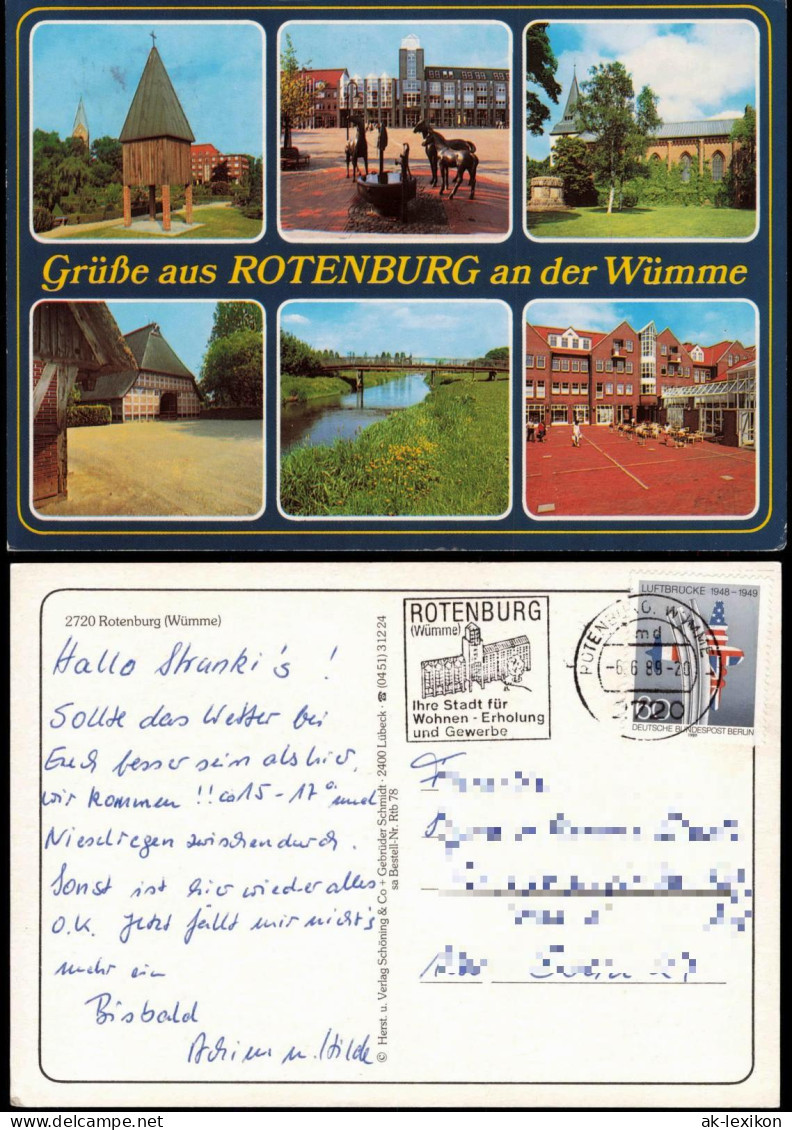 Grüße aus ROTENBURG an der Wümme
2720 Rotenburg (Wümme)
Hallo Stranki's !
Sollte das Wetter bei
Euch besser sein als hier,
wir kommen !! ca 15 - 17° und
Nieselregen zwischendurch.
Sonst ist hier wieder alles
O.K. Jetzt fällt mir nicht's
mehr ein
Bisbald
Achim u. Hilde
© Herst. u. Verlag Schöning & Co + Gebrüder Schmidt · 2400 Lübeck · ☎ (04 51) 3 12 24
sa Bestell-Nr. Rtb 78
ROTENBURG
(Wümme)
Ihre Stadt für
Wohnen - Erholung
und Gewerbe
ROTENBURG, WÜMME 1
md
-6.6.89-20
2720
LUFTBRÜCKE 1948-1949
DEUTSCHE BUNDESPOST BERLIN
ak-lexikon